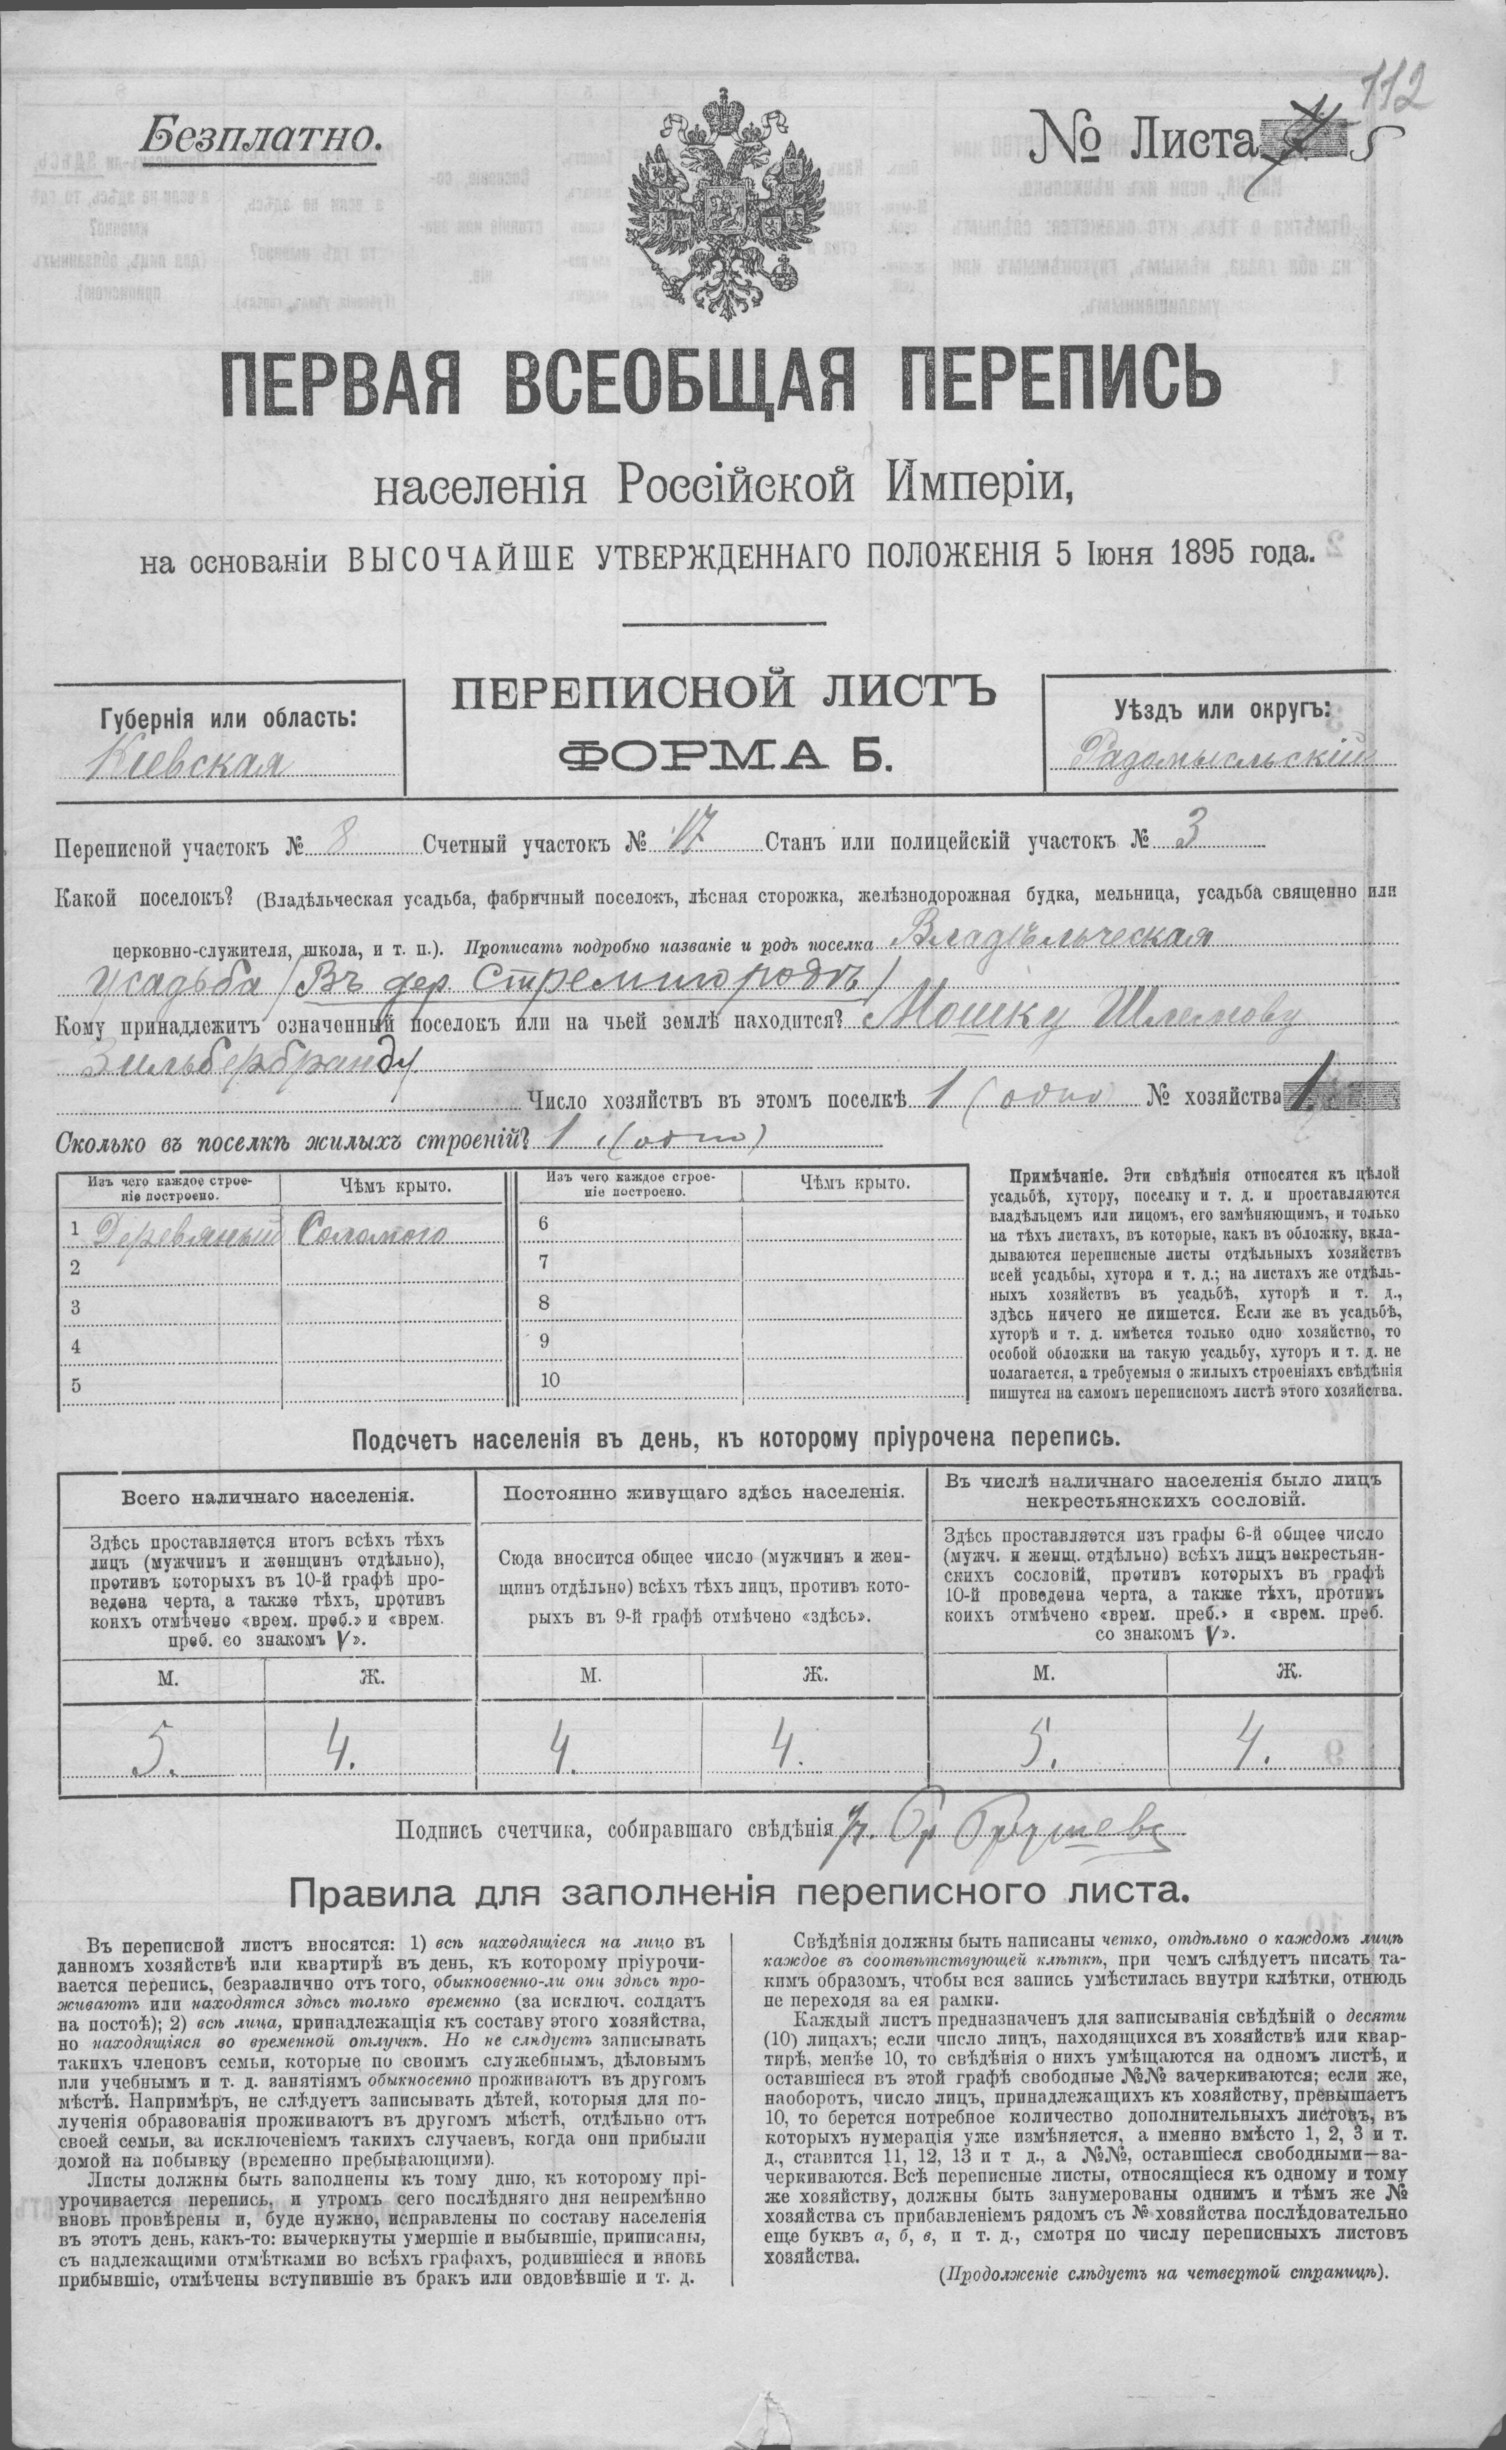 112
Безплатно.
№ Листа 5
ПЕРВАЯ ВСЕОБЩАЯ ПЕРЕПИСЬ
населенія Россійской Имперіи,
на основаніи ВЫСОЧАЙШЕ УТВЕРЖДЕННАГО ПОЛОЖЕНІЯ 5 Іюня 1895 года.
ПЕРЕПИСНОЙ ЛИСТЪ
ФОРМА Б.
Губернія или область:
Кіевская
Уѣздъ или округъ:
Радомысльскій
Переписной участокъ № 8 Счетный участокъ № 17 Станъ или полицейскій участокъ № 3
Какой поселокъ? (Владѣльческая усадьба, фабричный поселокъ, лѣсная сторожка, желѣзнодорожная будка, мельница, усадьба священно или
церковно-служителя, школа, и т. п.). Прописать подробно названіе и родъ поселка Владѣльческая
усадьба (Въ дер. Стремигородъ)
Кому принадлежитъ означенный поселокъ или на чьей землѣ находится? Мошку Шлемову
Зильбербранду
Число хозяйствъ въ этомъ поселкѣ 1 (одно) № хозяйства 1.
Сколько въ поселкѣ жилыхъ строеній? 1 (одно)
Изъ чего каждое строе-
ніе построено.
Чѣмъ крыто.
Изъ чего каждое строе-
ніе построено.
Чѣмъ крыто.
1 Деревяный Соломою
2
3
4
5
6
7
8
9
10
Примѣчаніе. Эти свѣдѣнія относятся къ цѣлой
усадьбѣ, хутору, поселку и т. д. и проставляются
владѣльцемъ или лицомъ, его замѣняющимъ, и только
на тѣхъ листахъ, въ которые, какъ въ обложку, вкла-
дываются переписные листы отдѣльныхъ хозяйствъ
всей усадьбы, хутора и т. д.; на листахъ же отдѣль-
ныхъ хозяйствъ въ усадьбѣ, хуторѣ и т. д.,
здѣсь ничего не пишется. Если же въ усадьбѣ,
хуторѣ и т. д. имѣется только одно хозяйство, то
особой обложки на такую усадьбу, хуторъ и т. д. не
полагается, а требуемыя о жилыхъ строеніяхъ свѣдѣнія
пишутся на самомъ переписномъ листѣ этого хозяйства.
Подсчетъ населенія въ день, къ которому пріурочена перепись.
Всего наличнаго населенія.
Здѣсь проставляется итогъ всѣхъ тѣхъ
лицъ (мужчинъ и женщинъ отдѣльно),
противъ которыхъ въ 10-й графѣ про-
ведена черта, а также тѣхъ, противъ
коихъ отмѣчено «врем. преб.» и «врем.
преб. со знакомъ V».
М. Ж.
5. 4.
Постоянно живущаго здѣсь населенія.
Сюда вносится общее число (мужчинъ и жен-
щинъ отдѣльно) всѣхъ тѣхъ лицъ, противъ кото-
рыхъ въ 9-й графѣ отмѣчено «здѣсь».
М. Ж.
4. 4.
Въ числѣ наличнаго населенія было лицъ
некрестьянскихъ сословій.
Здѣсь проставляется изъ графы 6-й общее число
(мужч. и женщ. отдѣльно) всѣхъ лицъ некрестьян-
скихъ сословій, противъ которыхъ въ графѣ
10-й проведена черта, а также тѣхъ, противъ
коихъ отмѣчено «врем. преб.» и «врем. преб.
со знакомъ V».
М. Ж.
5. 4.
Подпись счетчика, собиравшаго свѣдѣнія
Правила для заполненія переписного листа.
Въ переписной листъ вносятся: 1) всѣ находящіеся на лицо въ
данномъ хозяйствѣ или квартирѣ въ день, къ которому пріурочи-
вается перепись, безразлично отъ того, обыкновенно-ли они здѣсь про-
живаютъ или находятся здѣсь только временно (за исключ. солдатъ
на постоѣ); 2) всѣ лица, принадлежащія къ составу этого хозяйства,
но находящіяся во временной отлучкѣ. Но не слѣдуетъ записывать
такихъ членовъ семьи, которые по своимъ служебнымъ, дѣловымъ
или учебнымъ и т. д. занятіямъ обыкновенно проживаютъ въ другомъ
мѣстѣ. Напримѣръ, не слѣдуетъ записывать дѣтей, которыя для по-
лученія образованія проживаютъ въ другомъ мѣстѣ, отдѣльно отъ
своей семьи, за исключеніемъ такихъ случаевъ, когда они прибыли
домой на побывку (временно пребывающими).
Листы должны быть заполнены къ тому дню, къ которому прі-
урочивается перепись, и утромъ сего послѣдняго дня непремѣнно
вновь провѣрены и, буде нужно, исправлены по составу населенія
въ этотъ день, какъ-то: вычеркнуты умершіе и выбывшіе, приписаны,
съ надлежащими отмѣтками во всѣхъ графахъ, родившіеся и вновь
прибывшіе, отмѣчены вступившіе въ бракъ или овдовѣвшіе и т. д.
Свѣдѣнія должны быть написаны четко, отдѣльно о каждомъ лицѣ
каждое въ соотвѣтствующей клѣткѣ, при чемъ слѣдуетъ писать та-
кимъ образомъ, чтобы вся запись умѣстилась внутри клѣтки, отнюдь
не переходя за ея рамки.
Каждый листъ предназначенъ для записыванія свѣдѣній о десяти
(10) лицахъ; если число лицъ, находящихся въ хозяйствѣ или квар-
тирѣ, менѣе 10, то свѣдѣнія о нихъ умѣщаются на одномъ листѣ, и
оставшіеся въ этой графѣ свободные №№ зачеркиваются; если же,
наоборотъ, число лицъ, принадлежащихъ къ хозяйству, превышаетъ
10, то берется потребное количество дополнительныхъ листовъ, въ
которыхъ нумерація уже измѣняется, а именно вмѣсто 1, 2, 3 и т.
д., ставится 11, 12, 13 и т д., а №№, оставшіеся свободными—за-
черкиваются. Всѣ переписные листы, относящіеся къ одному и тому
же хозяйству, должны быть занумерованы однимъ и тѣмъ же №
хозяйства съ прибавленіемъ рядомъ съ № хозяйства послѣдовательно
еще буквъ а, б, в, и т. д., смотря по числу переписныхъ листовъ
хозяйства.
(Продолженіе слѣдуетъ на четвертой страницѣ).